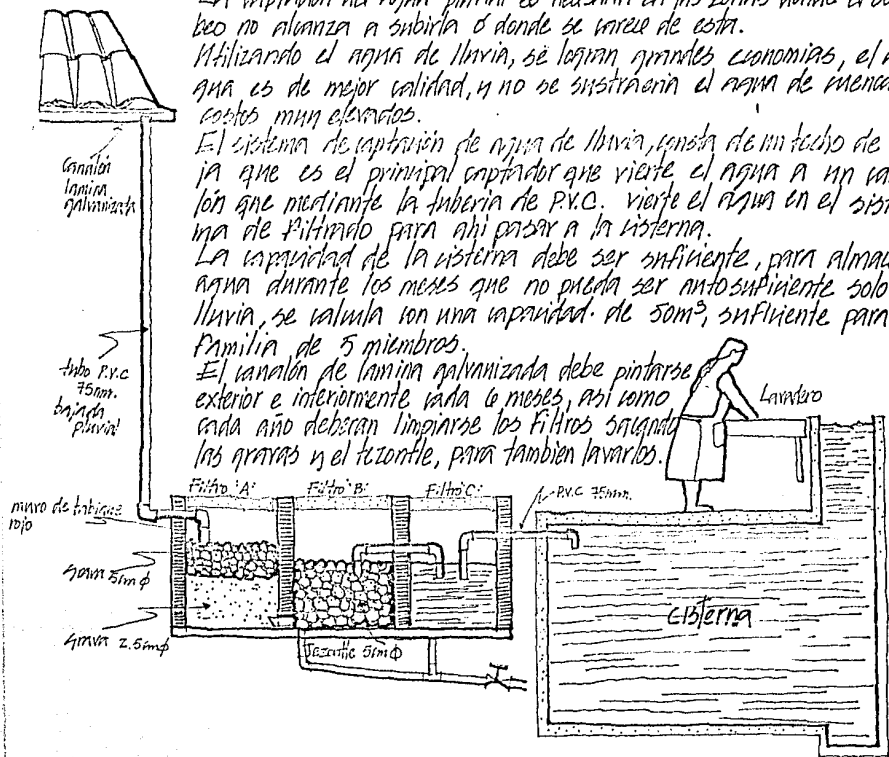 La captación del agua pluvial es necesaria en las zonas donde el bom
beo no alcanza a subirla ó donde se carece de esta.
Utilizando el agua de lluvia, se logran grandes economias, el a
gua es de mejor calidad, y no se sustraeria el agua de cuenca
costos muy elevados.
El sistema de captación de agua de lluvia, consta de un techo de
ja que es el principal captador que vierte el agua a un ca
lón que mediante la tuberia de P.V.C. vierte el agua en el sist
ma de Filtrado para ahi pasar a la cisterna.
La capacidad de la cisterna debe ser suficiente, para almac
agua durante los meses que no pueda ser autosuficiente solo
lluvia, se calcula con una capacidad. de 50m³, suficiente para
Familia de 5 miembros.
El canalón de lamina galvanizada debe pintarse
exterior e interiormente cada 6 meses, asi como
cada año deberan limpiarse los Filtros sacando
las gravas y el tezontle, para tambien lavarlos.
canalón
lamina
galvanizada
tubo P.V.C
75mm.
bajada
pluvial
Lavadero
Filtro "A"
Filtro "B"
Filtro "C"
P.V.C 75mm.
muro de tabique
rojo
grava 5cm ϕ
Grava 2.5cm ϕ
Tezontle 5cm ϕ
cisterna